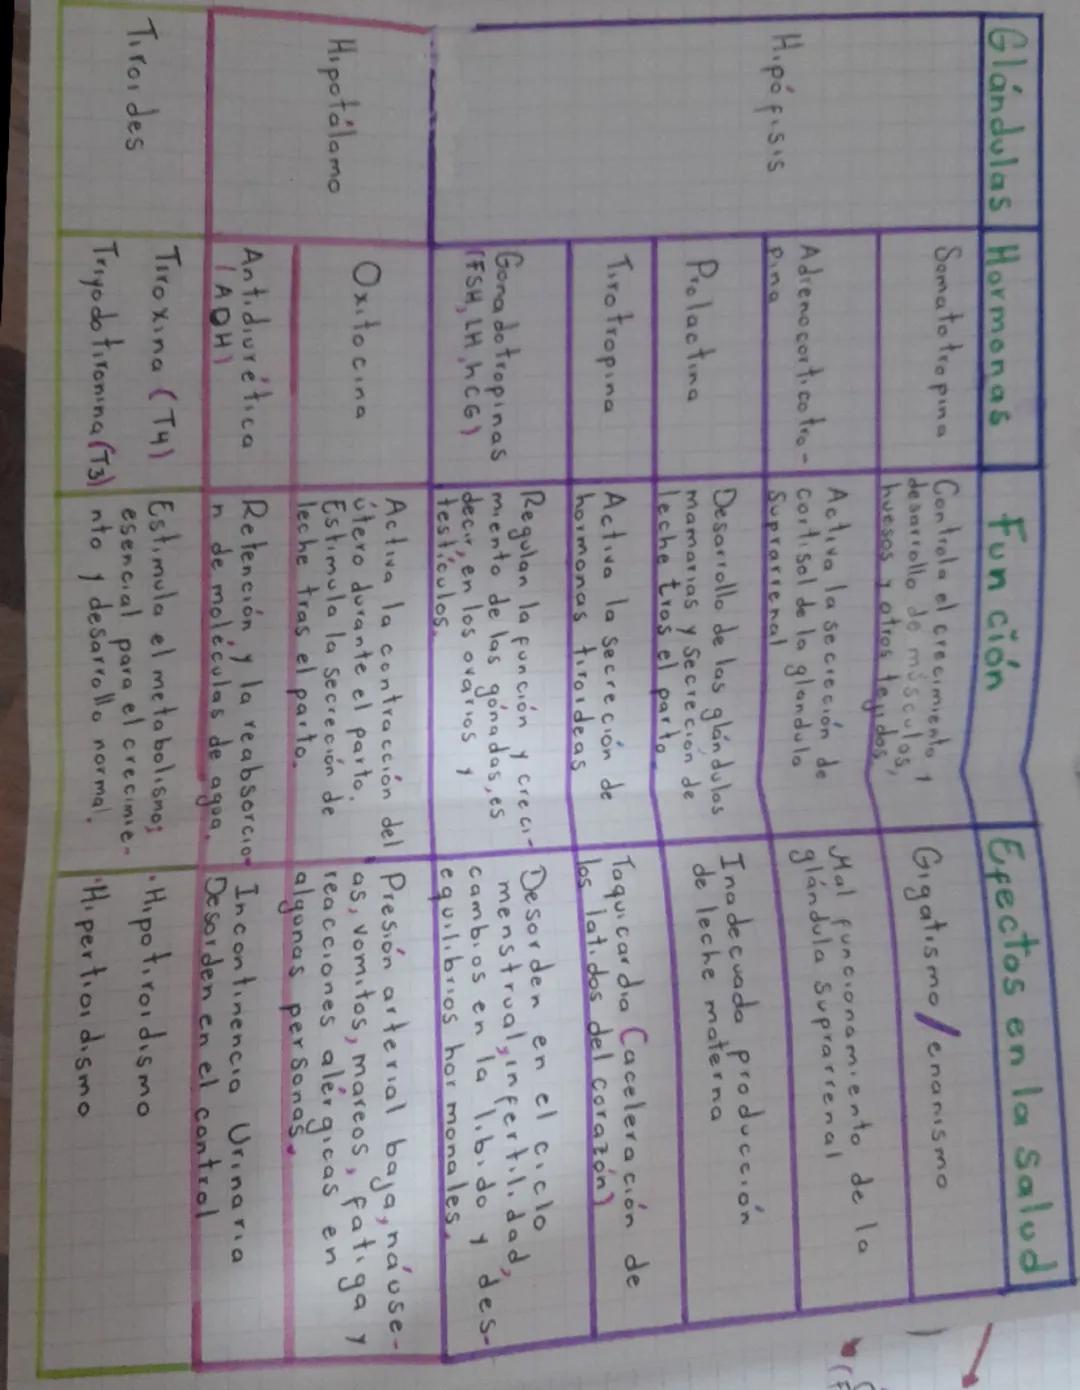 Glándulas Hormonas Función Efectos en la salud
Hipófisis
Somatotropina
Controla el crecimiento y
desarrollo de músculos,
huesos y otros tejidos,
Gigatismo/enanismo
Adrenocorticotro-
pina
Activa la secreción de
cortisol de la glandula
suprarrenal
Mal funcionamiento de la
glándula suprarrenal
Prolactina
Desarollo de las glándulas
mamarias y secrecion de
leche tras el parto.
Inadecuada producción
de leche materna
Tirotropina
Activa la secreción de
hormonas tiroideas
Taquicardia (aceleración de
los latidos del corazón)
Gonadotropinas
(FSH, LH, hCG)
Regulan la función y creci-
miento de las gónadas, es
decir, en los ovarios y
testículos.
Desorden en el ciclo
menstrual, infertilidad,
cambios en la libido y des-
equilibrios hormonales.
Hipotálamo
Oxitocina
Activa la contracción del
útero durante el parto.
Estimula la secreción de
leche tras el parto.
Presión arterial baja, náuse-
as, vomitos, mareos, fatiga y
reacciones alérgicas en
algunas personas.
Antidiurética
(ADH)
Retención y la reabsorcio-
n de moléculas de agua.
Incontinencia Urinaria
Desorden en el control
Tiroides
Tiroxina (T4)
Triyodotironina (T3)
Estimula el metabolismo;
esencial para el crecimie-
nto y desarrollo normal.
• Hipotiroidismo
• Hipertioidismo